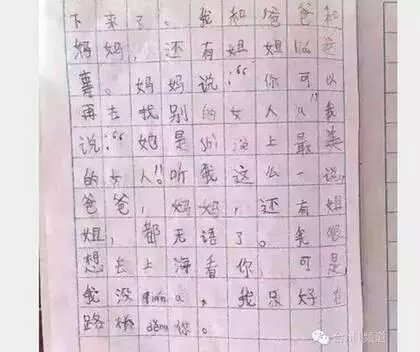 下来了。我和爸爸和
妈妈,还有姐姐 这
。妈妈说:“你可以
再去找别的女人。”我
说:“她是 上最美
的女人”。听我这么一说,
爸爸,妈妈,还有姐
姐,都无语了。我很
想去上海看你,可是,
我没 。我只好在
路桥 你。
台州频道